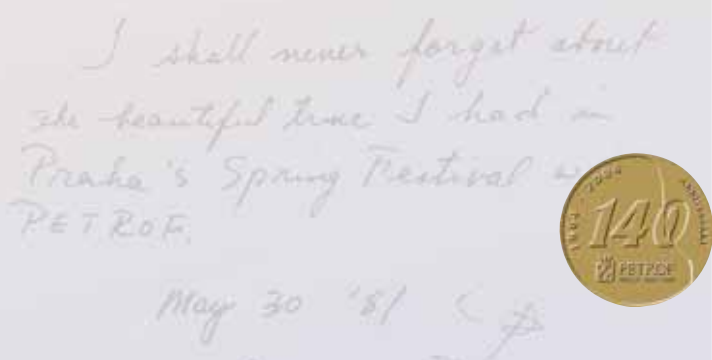 I shall never forget about
the beautiful time I had in
Praha's Spring Festival
PETROF.
May 30 '81
1864 - 2004 ANNIVERSARY
140
PETROF